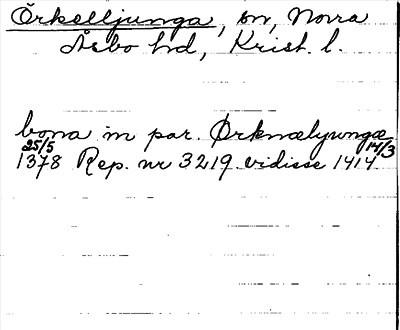 Örkelljunga, sn, Norra
Åsbo hd, Krist. l.
bona in par. Ørknælyungæ
25/5 1378 Rep. nr 3219. vidisse 14/3 1414